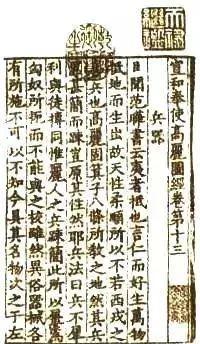 宣和奉使高麗圖經卷第十三
兵器
臣聞范曄書云夷者抵也言仁而好生萬物
抵地而生出故天性柔順所以不若西戎之
喜兵也高麗國箕子八條所教之地然其兵
器甚簡而踈豈原其性然耶兵法曰兵不犀
利與徒搏同惟麗人之兵踈簡此所以屢為
匈奴所扼而不能與之校雖然異俗器械各
有所施不可以不知今具其名物次之于左